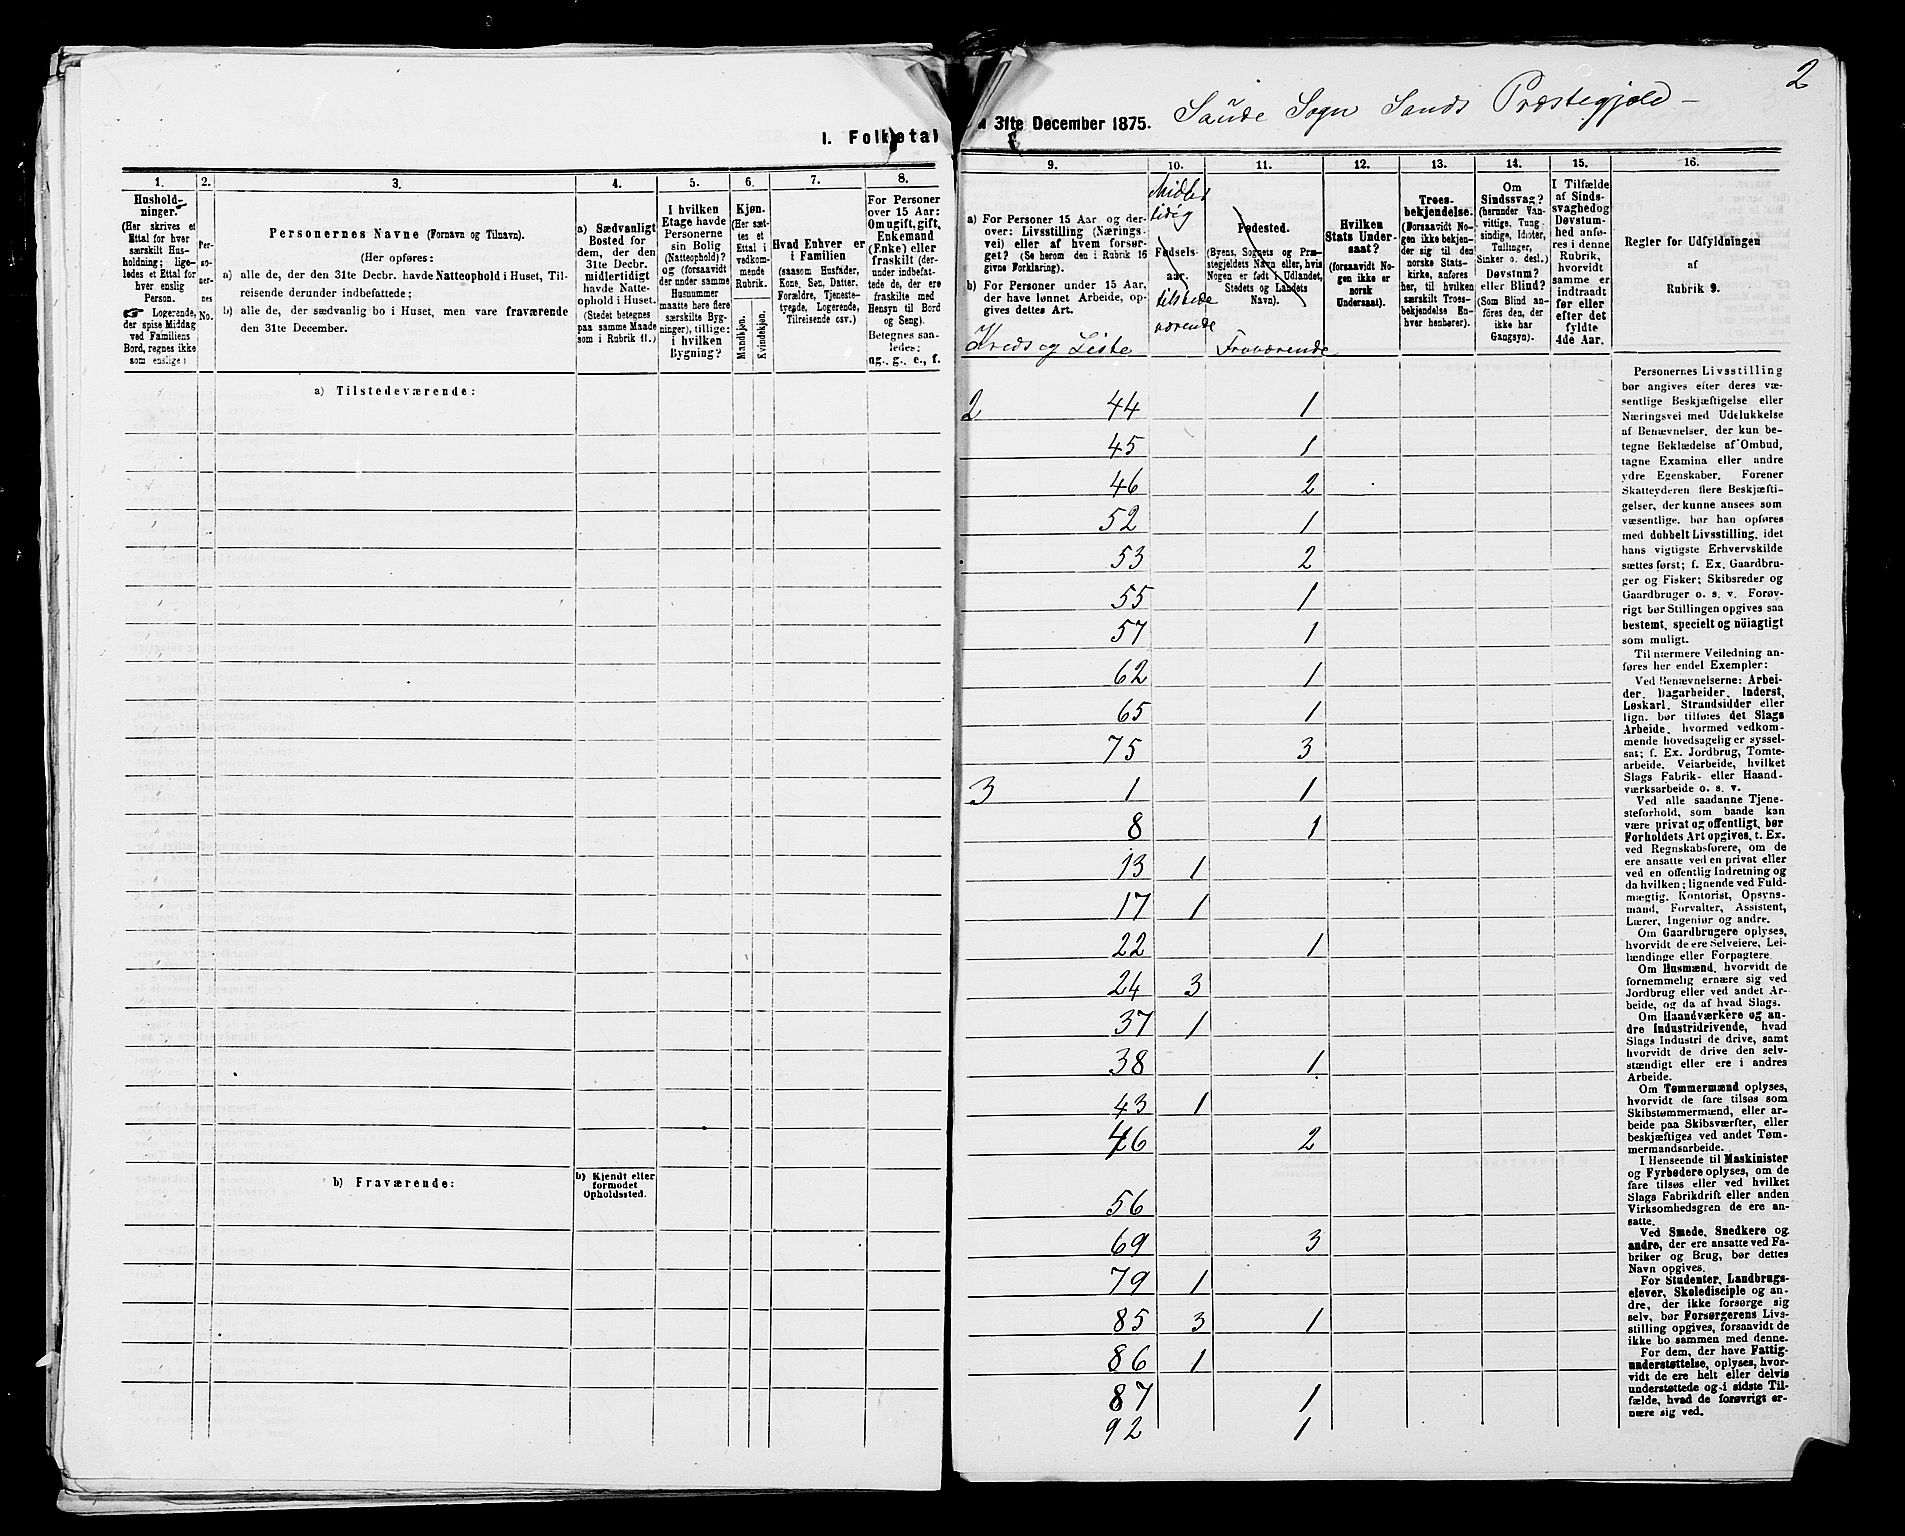 2
I. Folketal
31te December 1875. Saude Sogn Sands Præstegjeld
1.
Hushold-
ninger.
(Her skrives et
Ettal for hver
særskilt Hus-
holdning; lige-
ledes et Ettal for
hver enslig
Person.
☛ Logerende,
der spise Middag
ved Familiens
Bord, regnes ikke
som enslige)
2.
Per-
so-
ner-
nes
No.
3.
Personernes Navne (Fornavn og Tilnavn).
(Her opføres:
a) alle de, der den 31te Decbr. havde Natteophold i Huset, Til-
reisende derunder indbefattede;
b) alle de, der sædvanlig bo i Huset, men vare fraværende
den 31te December.
4.
a) Sædvanligt
Bosted for
dem, der den
31te Decbr.
midlertidigt
havde Natte-
ophold i Huset.
(Stedet betegnes
paa samme Maade
som i Rubrik 11.)
5.
I hvilken
Etage havde
Personerne
sin Bolig
(Natteophold)?
og (forsaavidt
der under samme
Husnummer
maatte høre flere
særskilte Byg-
ninger), tillige:
i hvilken
Bygning?
6.
Kjøn.
(Her sæt-
tes et
Ettal i
vedkom-
mende
Rubrik.
Mandkjøn.
Kvindekjøn.
7.
Hvad Enhver er
i Familien
(saasom Husfader,
Kone, Søn, Datter,
Forældre, Tjeneste-
tyende, Logerende,
Tilreisende osv.)
8.
For Personer
over 15 Aar:
Om ugift, gift,
Enkemand
(Enke) eller
fraskilt (der-
under indbefat-
tede de, der ere
fraskilte med
Hensyn til Bord
og Seng).
Betegnes saa-
ledes:
ug., g., e., f.
a) Tilstedeværende:
b) Fraværende:
b) Kjendt eller
formodet
Opholdssted.
9.
a) For Personer 15 Aar og der-
over: Livsstilling (Nærings-
vei) eller af hvem forsør-
get? (Se herom den i Rubrik 16
givne Forklaring).
b) For Personer under 15 Aar,
der have lønnet Arbeide, op-
gives dettes Art.
Kreds og Liste
10.
Midler
tidig
Fødsels-
aar.
tilstede
værende
11.
Fødested.
(Byens, Sognets og Præ-
stegjeldets Navn eller, hvis
Nogen er født i Udlandet,
Stedets og Landets
Navn).
Fraværende
12.
Hvilken
Stats Under-
saat?
(forsaavidt No-
gen ikke er
norsk
Undersaat).
13.
Troes-
bekjendelse.
(Forsaavidt No-
gen ikke bekjen-
der sig til den
norske Stats-
kirke, anføres
her, til hvilken
særskilt Troes-
bekjendelse En-
hver henhører).
14.
Om
Sindssvag?
(herunder Van-
vittige, Tung-
sindige, Idioter,
Tullinger,
Sinker o. desl.)
Døvstum?
eller Blind?
(Som Blind an-
føres den, der
ikke har
Gangsyn).
15.
I Tilfælde
af Sinds-
svaghed og
Døvstum-
hed anfø-
res i denne
Rubrik,
hvorvidt
samme er
indtraadt
før eller
efter det
fyldte
4de Aar.
16.
Regler for Udfyldningen
af
Rubrik 9.
2 44 1
45 1
46 2
52 1
53 2
55 1
57 1
62 1
65 1
75 3
3 1 1
8 1
13 1
17 1
22 1
24 3
37 1
38 1
43 1
46 2
56
69 3
79 1
85 3 1
86 1
87 1
92 1
Personernes Livsstilling
bør angives efter deres væ-
sentlige Beskjæftigelse eller
Næringsvei med Udelukkelse
af Benævnelser, der kun be-
tegne Beklædelse af Ombud,
tagne Examina eller andre
ydre Egenskaber. Forener
Skatteyderen flere Beskjæfti-
gelser, der kunne ansees som
væsentlige, bør han opføres
med dobbelt Livsstilling, idet
hans vigtigste Erhvervskilde
sættes først; f. Ex. Gaardbru-
ger og Fisker; Skibsreder og
Gaardbruger o. s. v. Forøv-
rigt bør Stillingen opgives saa
bestemt, specielt og nöiagtigt
som muligt.
Til nærmere Veiledning an-
føres her endel Exempler:
Ved Benævnelserne: Arbei-
der, Dagarbeider, Inderst,
Løskarl, Strandsidder eller
lign. bør tilføres det Slags
Arbeide, hvormed vedkom-
mende hovedsagelig er syssel-
sat; f. Ex. Jordbrug, Tomte-
arbeide, Veiarbeide, hvilket
Slags Fabrik- eller Haand-
værksarbeide o. s. v.
Ved alle saadanne Tjene-
steforhold, som baade kan
være privat og offentligt, bør
Forholdets Art opgives, t. Ex.
ved Regnskabsførere, om de
ere ansatte ved en privat eller
ved en offentlig Indretning og
da hvilken; lignende ved Fuld-
mægtig, Kontorist, Opsyns-
mand, Forvalter, Assistent,
Lærer, Ingeniør og andre.
Om Gaardbrugere oplyses,
hvorvidt de ere Selveiere, Lei-
lændinge eller Forpagtere.
Om Husmænd, hvorvidt de
fornemmelig ernære sig ved
Jordbrug eller ved andet Ar-
beide, og da af hvad Slags.
Om Haandværkere og an-
dre Industridrivende, hvad
Slags Industri de drive, samt
hvorvidt de drive den selv-
stændigt eller ere i andres
Arbeide.
Om Tømmermænd oplyses,
hvorvidt de fare tilsøs som
Skibstømmermænd, eller ar-
beide paa Skibsværfter, eller
beskjæftiges ved andet Tøm-
mermandsarbeide.
I Henseende til Maskinister
og Fyrbødere oplyses, om de
fare tilsøs eller ved hvilket
Slags Fabrikdrift eller anden
Virksomhedsgren de ere an-
satte.
Ved Smede, Snedkere og
andre, der ere ansatte ved Fa-
briker og Brug, bør dettes
Navn opgives.
For Studenter, Landbrugs-
elever, Skoledisciple og an-
dre, der ikke forsørge sig
selv, bør Forsørgerens Livs-
stilling opgives, forsaavidt de
ikke bo sammen med denne.
For dem, der have Fattig-
understøttelse, oplyses, hvor-
vidt de ere helt eller delvis
understøttede og i sidste Til-
fælde, hvad de forøvrigt er-
nære sig ved.